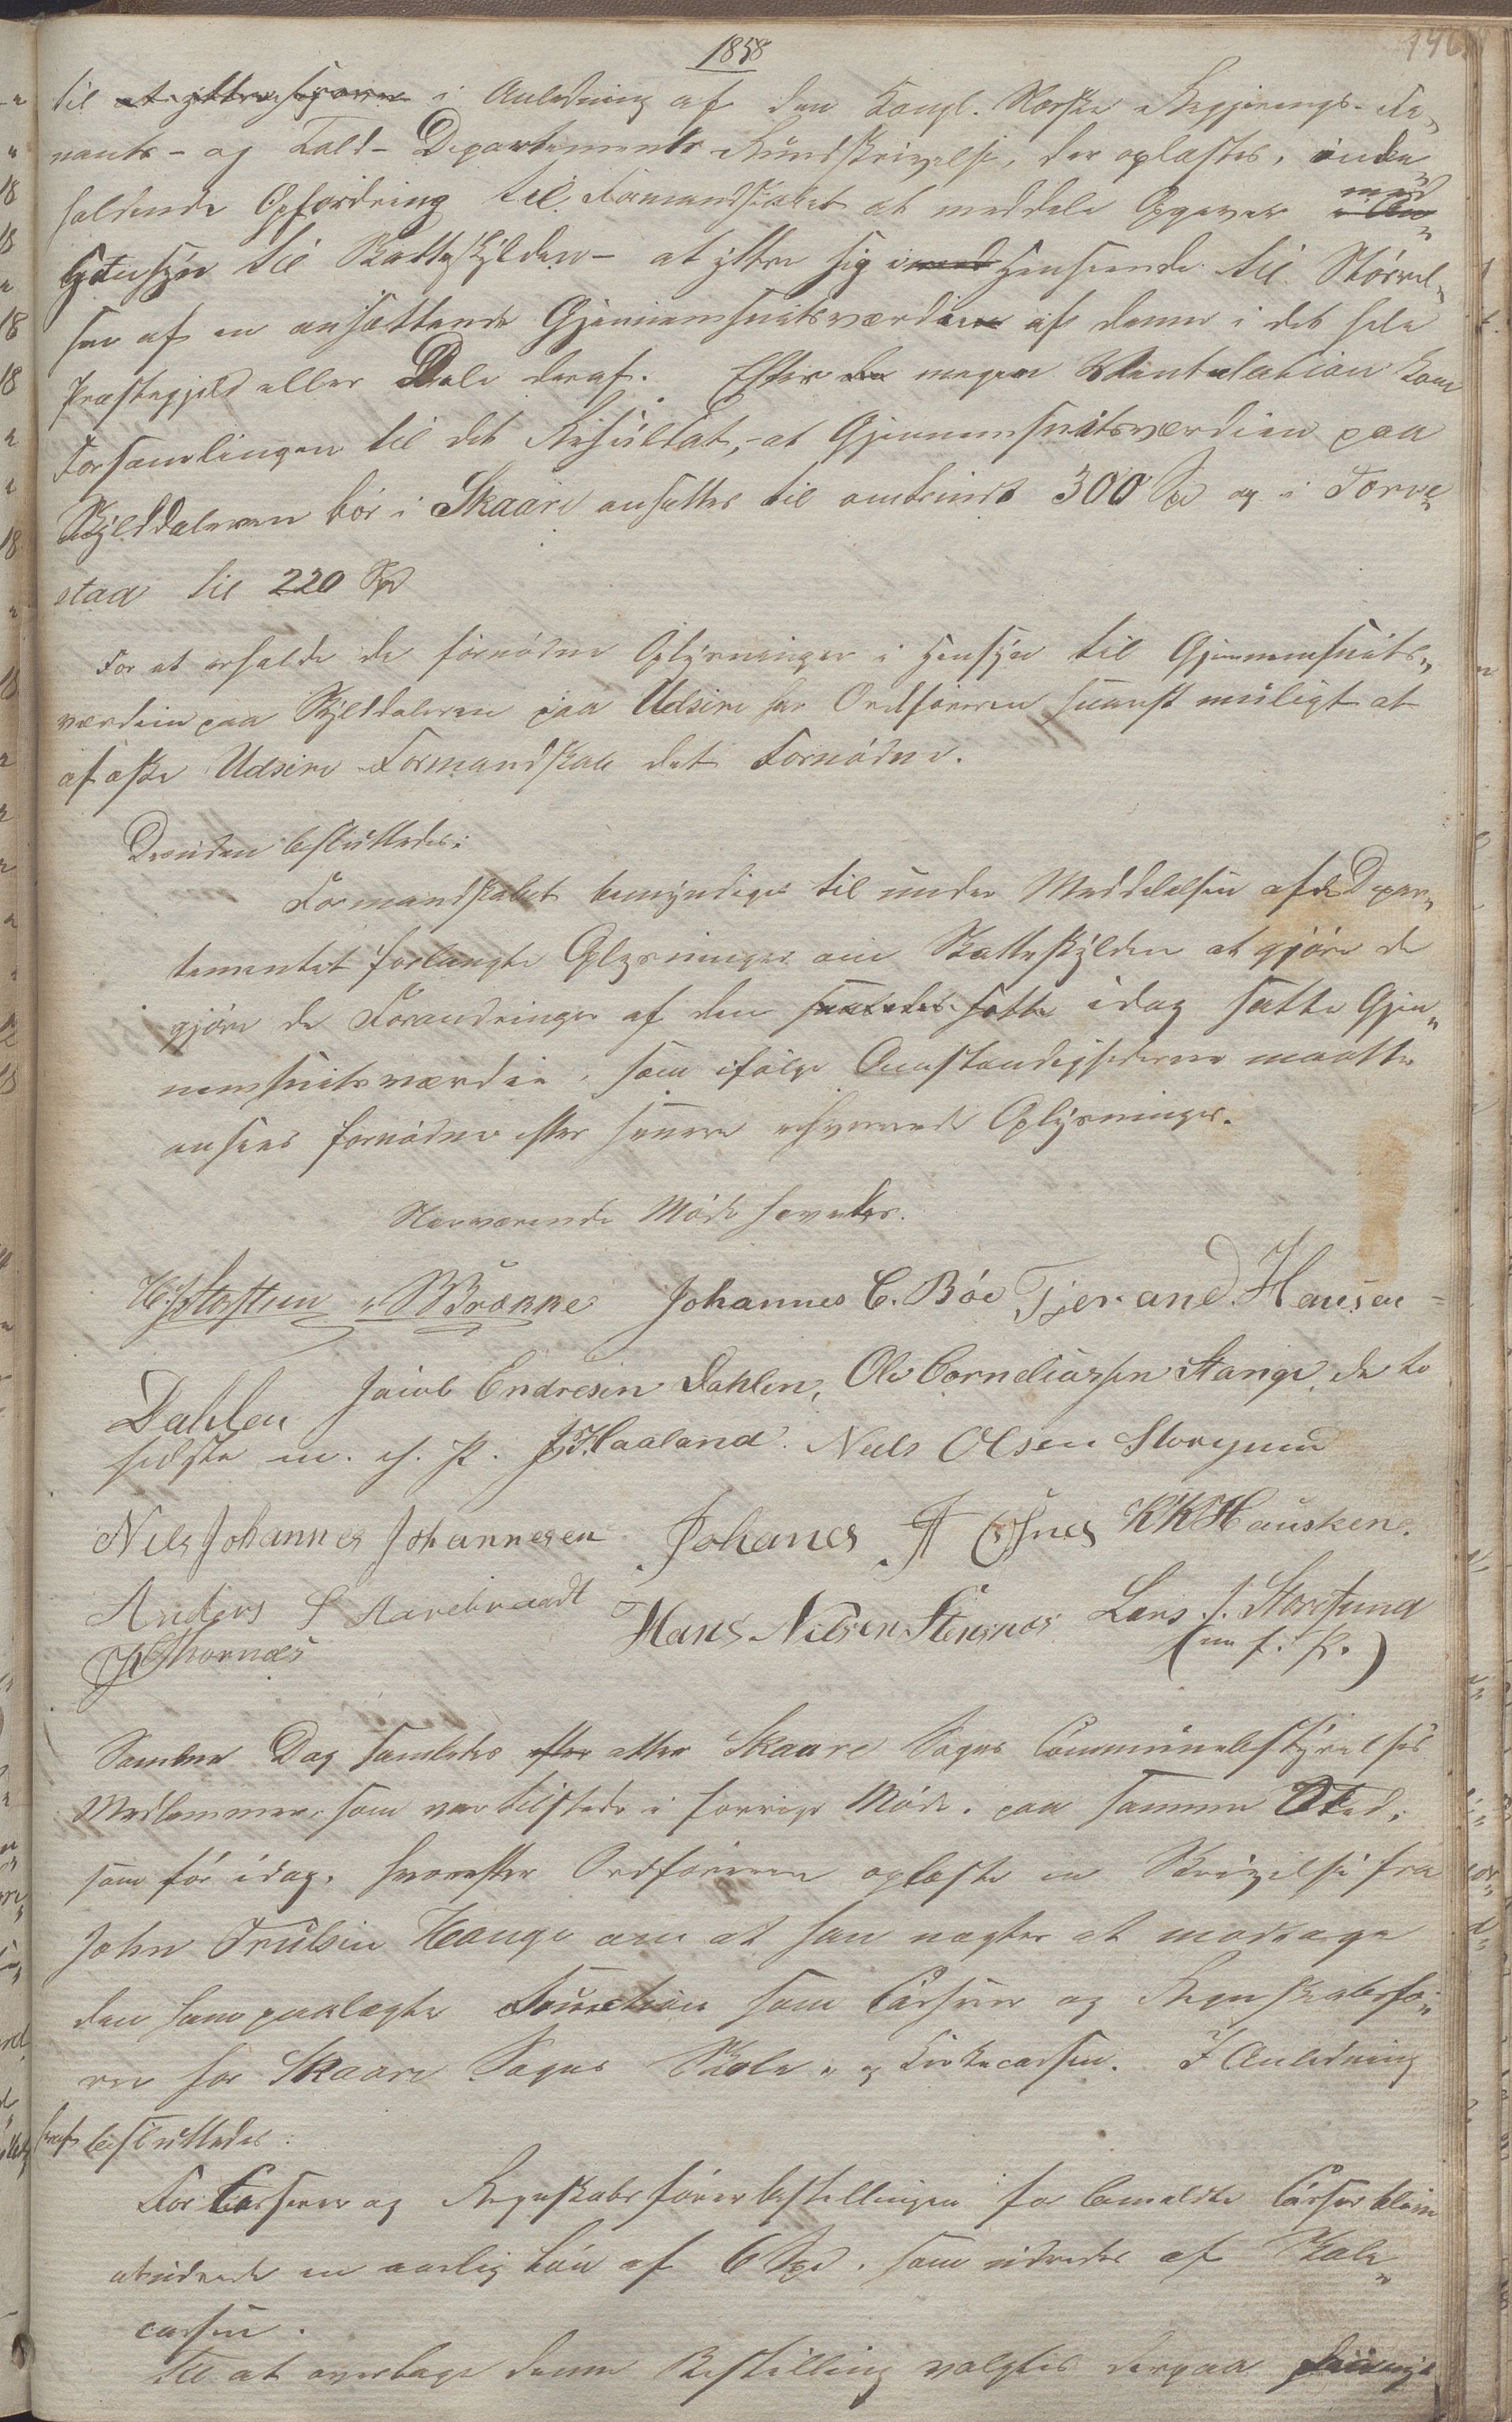 1858
146
til at yttre hvore i Anledning af den Kongl. Norske Regjerings-Fi„
nants- og Told-Departements Rundskrivelse, der oplæstes, inde„
holdende Opfordring til Formandskabet at meddele Opgaver med
Hensyn til Skatteskylden - at yttre sig i med Henseende til Størrel„
sen af en ansættende Gjennemsnitsværdien af denne i det hele
Præstegjeld eller Dele deraf. Efter megen Ventulation kom
Forsamlingen til det Resultat, at Gjennemsnitsværdien paa
Skylddaleren bør i Skaare ansættes til omtrindt 300 Spd og i Torve„
stad til 220 Spd
For at erholde de fornødne Oplysninger i Hensyn til Gjennemsnits„
værdien paa Skylddaleren paa Udsire har Ordføreren snarest muligt at
afæske Udsire Formandskab det Fornødne.
Desuden besluttedes:
Formandskabet bemyndiges til under Meddelelsen af de Depar„
tementet forlangte Oplysninger om Skatteskylden at gjøre de
gjøre de Forandringer af den saaledes satte idag satte Gjen„
nemsnitsværdie, som ifølge Omstændighederne maatte
ansees fornødne efter senere erhvervede Oplysninger.
Nærværende Møde hævedes.
Johannes C. Bøe Tjerand Hansen
Dahlen Jacob Endresen Dahlen, Ole Corneliussen Stange, de to
sidste m. f. P. J. Haaland. Niels Olsen Storesund
Nils Johannes Johannesen Johanes J Osnes K K Hausken.
Anders S Aarebraadt Hans Nilsen Stensnæs Lars J. Storesund
(m f. P.)
Samme Dag samledes efter atter Skaare Sogns Communebestyrelses
Medlemmer, som var tilstede i forrige Møde, paa samme Sted,
som før idag, hvorefter Ordføreren oplæste en Skrivelse fra
John Trulsen Hauge om at han nægter at modtage
den ham paalagte Function som Casserer og Regnskabsfø„
rer for Skaare Sogns Skole- og Kirkecasse. I Anledning
heraf besluttedes:
For Casserer og Regnskabsførerbestillingen for bemeldte Casser bliver
at udrede en aarlig Løn af 6 Spd. som udredes af Skole„
cassen.
Til at overtage denne Bestilling valgtes derpaa